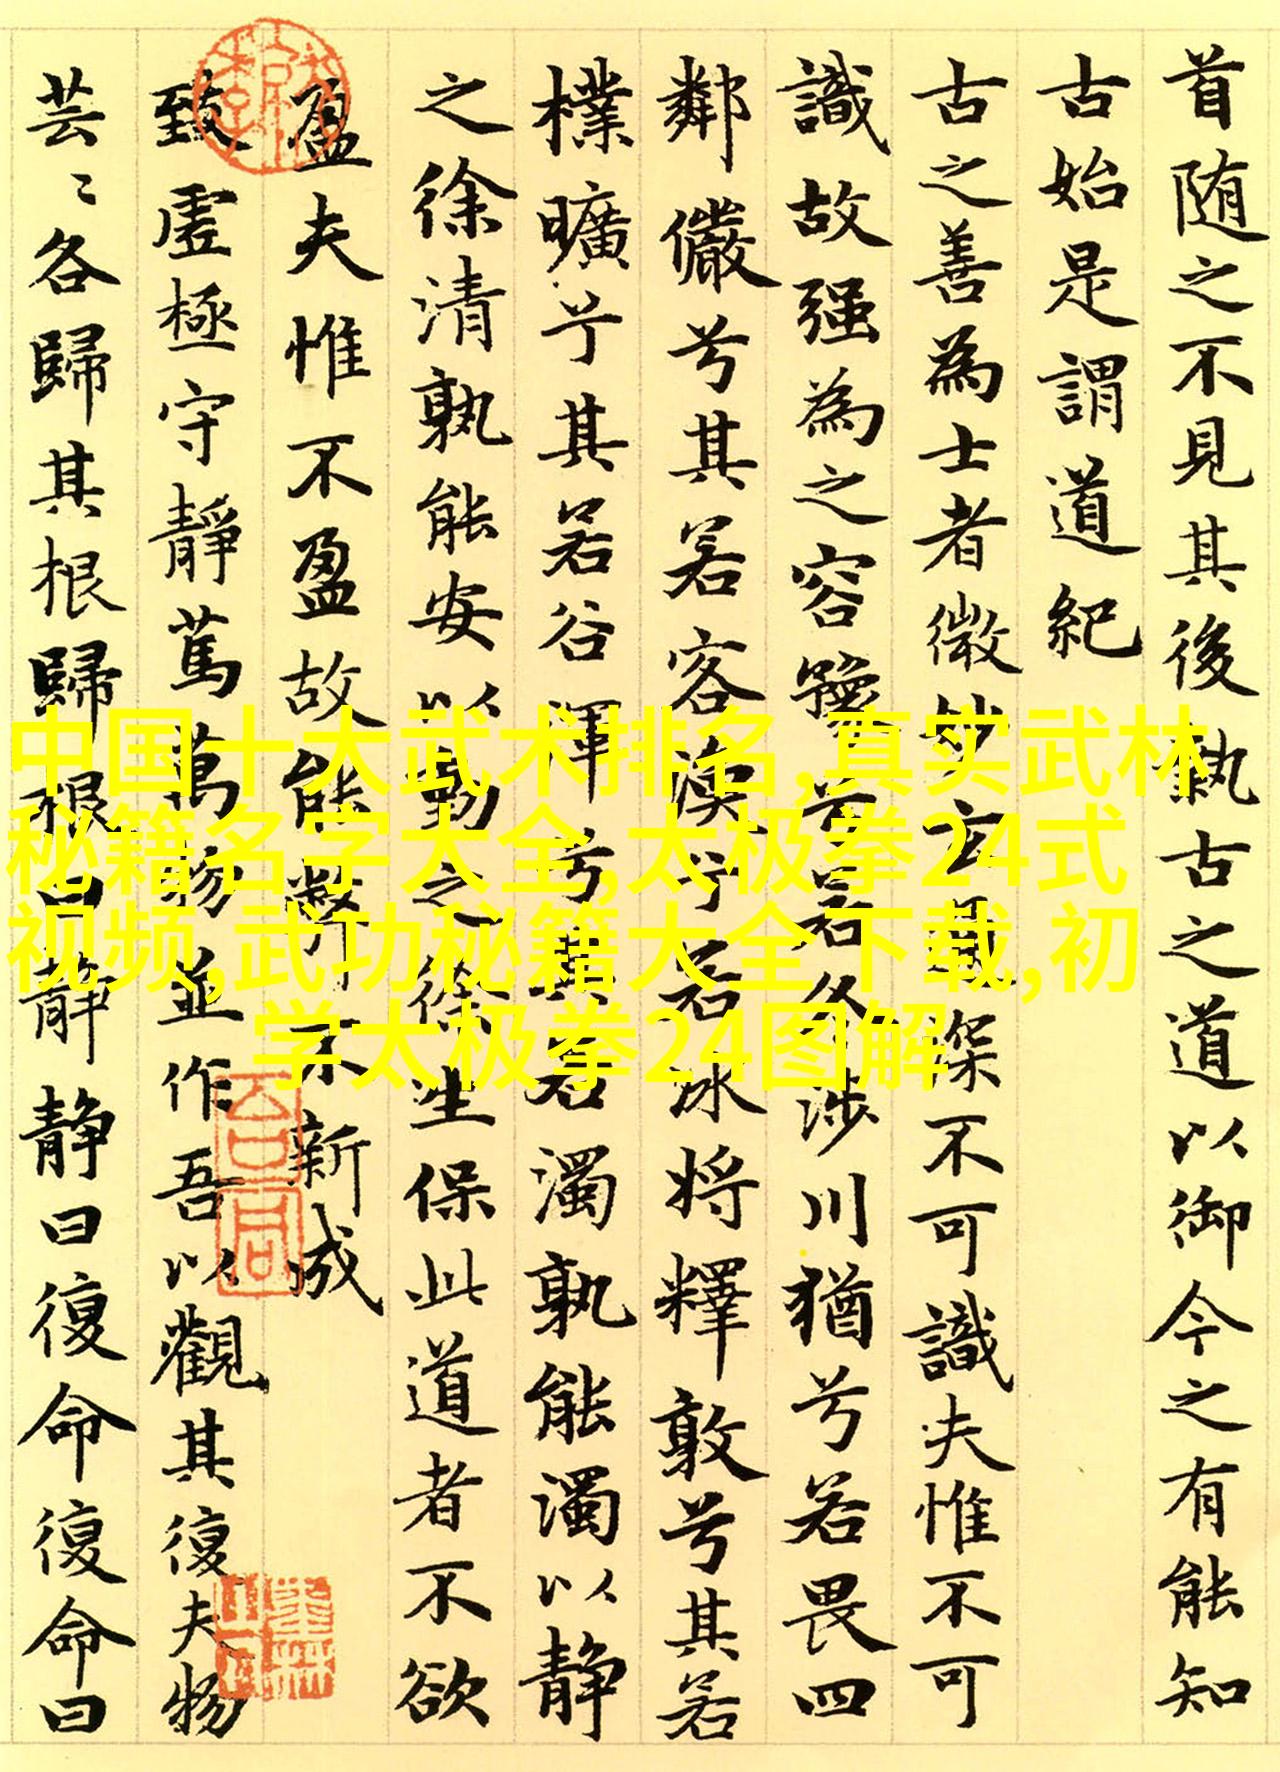 首随之不見其後執古之道以御今之有能知
古始是謂道紀
古之善為士者微妙玄通深不可識夫惟不可
識故强為之容豫兮若冬涉川猶兮若畏四
鄰儼兮其若客渙兮若冰将釋敦兮其若
樸曠兮其若谷渾兮其若濁孰能濁以静
之徐清孰能安以動之徐生保此道者不欲
盈夫惟不盈故能弊不新成
致虚極守靜篤萬物並作吾以觀其復夫物
芸〻各歸其根歸根曰静静曰復命復命曰
中国十大武术排名,真实武林
秘籍名字大全,太极拳24式
视频,武功秘籍大全下载,初
学太极拳24图解